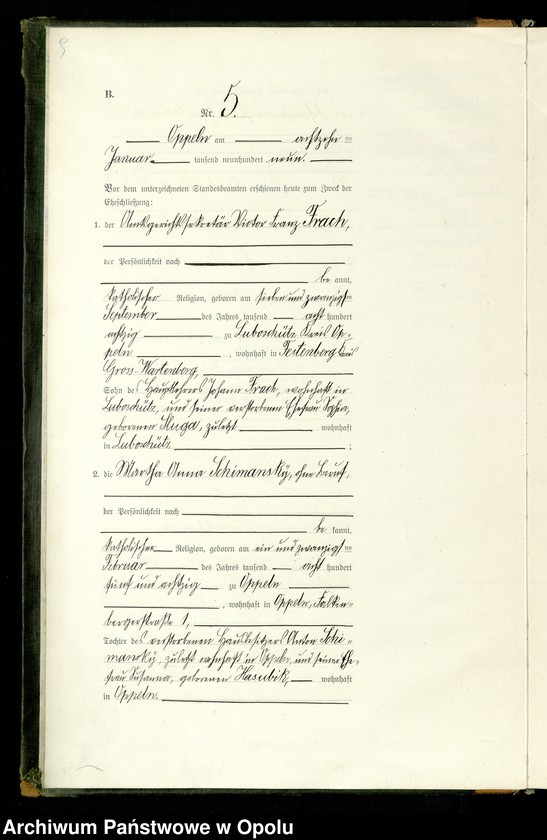 9
B.
Nr. 5.
Oppeln am achtzehnten
Januar tausend neunhundert neun.
Vor dem unterzeichneten Standesbeamten erschienen heute zum Zweck der
Eheschließung:
1. der Amtsgerichtssekretär Victor Franz Frach,
der Persönlichkeit nach
be kannt,
katholischer Religion, geboren am sieben und zwanzigsten
September des Jahres tausend acht hundert
achtzig zu Luboschütz Kreis Op-
peln, wohnhaft in Festenberg Kreis
Gross-Wartenberg,
Sohn des Hauptlehrers Johann Frach, wohnhaft in
Luboschütz, und seiner verstorbenen Ehefrau Sophia,
geborenen Sluga, zuletzt wohnhaft
in Luboschütz;
2. die Martha Anna Schimansky, ohne Beruf,
der Persönlichkeit nach
be kannt,
katholischer Religion, geboren am ein und zwanzigsten
Februar des Jahres tausend acht hundert
fünf und achtzig zu Oppeln
, wohnhaft in Oppeln, Falken-
bergerstraße 1,
Tochter des verstorbenen Hausbesitzers Anton Schi-
mansky, zuletzt wohnhaft in Oppeln, und seiner Ehe-
frau Susanna, geborenen Hasubik, wohnhaft
in Oppeln.
Archiwum Państwowe w Opolu